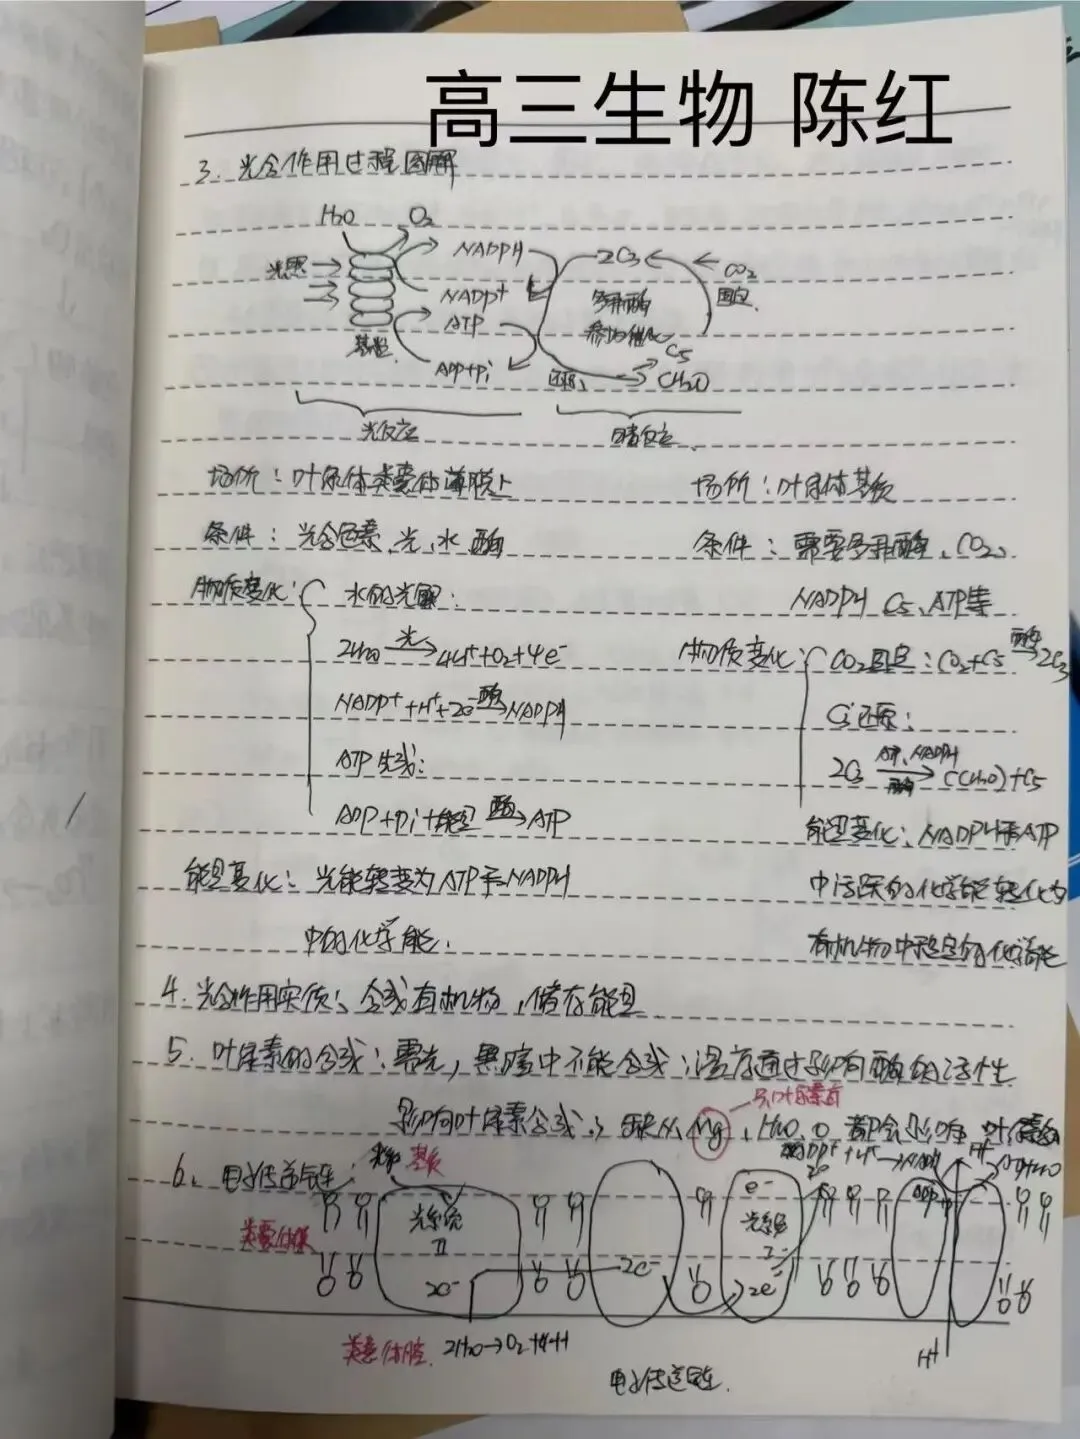 高三生物 陈红
3. 光合作用过程图解
H₂O O₂
光照 NADPH 2C₃ CO₂
NADP⁺ 多种酶 固定
ATP 参加催化
基粒 C₅
ADP+Pi 还原 (CH₂O)
光反应 暗反应
场所：叶绿体类囊体薄膜上 场所：叶绿体基质
条件：光合色素、光、水、酶 条件：需要多种酶、CO₂、
物质变化： 水的光解： NADPH C₅、ATP等
2H₂O 光→ 4H⁺+O₂+4e⁻ 物质变化： CO₂固定：CO₂+C₅ 酶→ 2C₃
NADP⁺+H⁺+2e⁻ 酶→ NADPH C₃还原：
ATP生成： 2C₃ ATP、NADPH 酶→ (CH₂O)+C₅
ADP+Pi+能量 酶→ ATP 能量变化：NADPH和ATP
能量变化：光能转变为ATP和NADPH 中活跃的化学能转化为
中的化学能. 有机物中稳定的化学能
4. 光合作用实质：合成有机物，储存能量
5. 叶绿素的合成：需光，黑暗中不能合成；温度通过影响酶的活性
影响叶绿素合成；缺N、Mg、H₂O、都会影响 叶绿素
6. 电子传递链： 基质
类囊体膜 光系统 e⁻ 光系统
II I
2e⁻ 2e⁻ 2e⁻
类囊体腔. 2H₂O→O₂+4H H⁺
电子传递链.